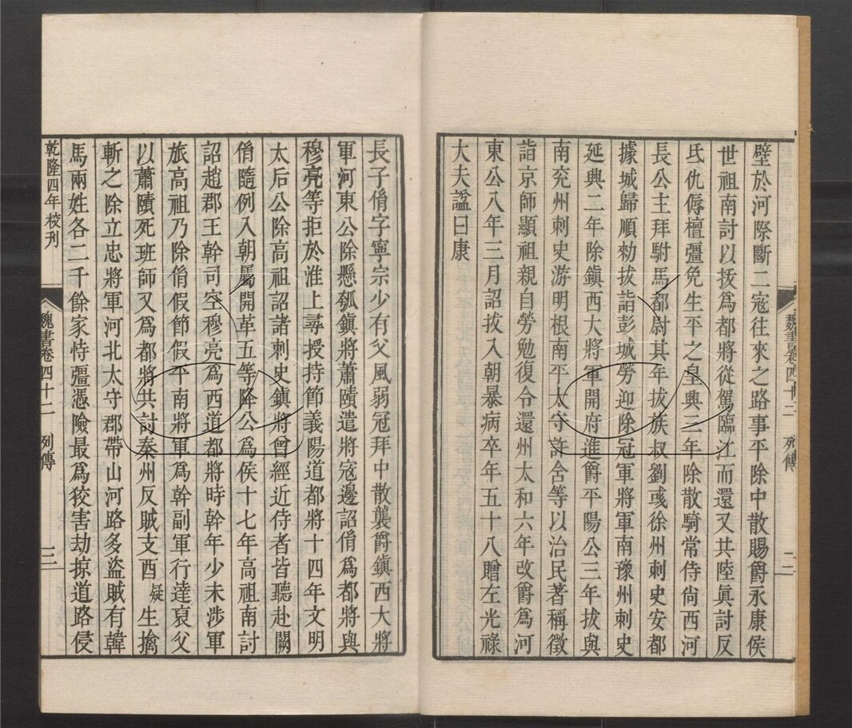 壁於河際斷二寇往來之路事平除中散賜爵永康侯
世祖南討以拔爲都將從駕臨江而還又共陸眞討反
氐仇傉檀彊免生平之皇興三年除散騎常侍尙西河
長公主拜駙馬都尉其年拔族叔劉彧徐州刺史安都
據城歸順勑拔詣彭城勞迎除冠軍將軍南豫州刺史
延興二年除鎭西大將軍開府進爵平陽公三年拔與
南兗州刺史游明根南平太守許含等以治民著稱徵
詣京師顯祖親自勞勉復令還州太和六年改爵爲河
東公八年三月詔拔入朝暴病卒年五十八贈左光祿
大夫諡曰康
魏書卷四十二 列傳 二
長子脩字寧宗少有父風弱冠拜中散襲爵鎭西大將
軍河東公除懸瓠鎭將蕭賾遣將寇邊詔脩爲都將與
穆亮等拒於淮上尋授持節義陽道都將十四年文明
太后公除高祖詔諸刺史鎭將曾經近侍者皆聽赴闕
脩隨例入朝屬開革五等降公爲侯十七年高祖南討
詔趙郡王幹司空穆亮爲西道都將時幹年少未涉軍
旅高祖乃除脩假節假平南將軍爲幹副軍行達襄父
以蕭賾死班師又爲都將共討秦州反賊支酉 疑 生擒
斬之除立忠將軍河北太守郡帶山河路多盜賊有韓
馬兩姓各二千餘家恃彊憑險最爲狡害劫掠道路侵
乾隆四年校刊
魏書卷四十二 列傳 三